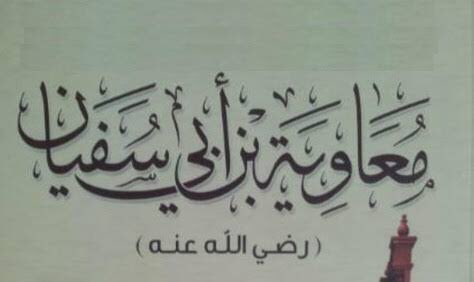 مُعَاوِيَة بْن أَبِي سُفْيَان
(رضي الله عنه)